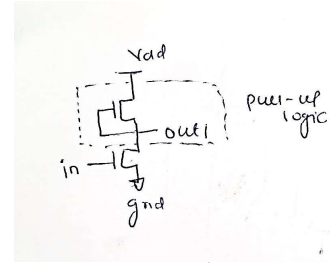 Vdd
pull-up
logic
out1
in
gnd